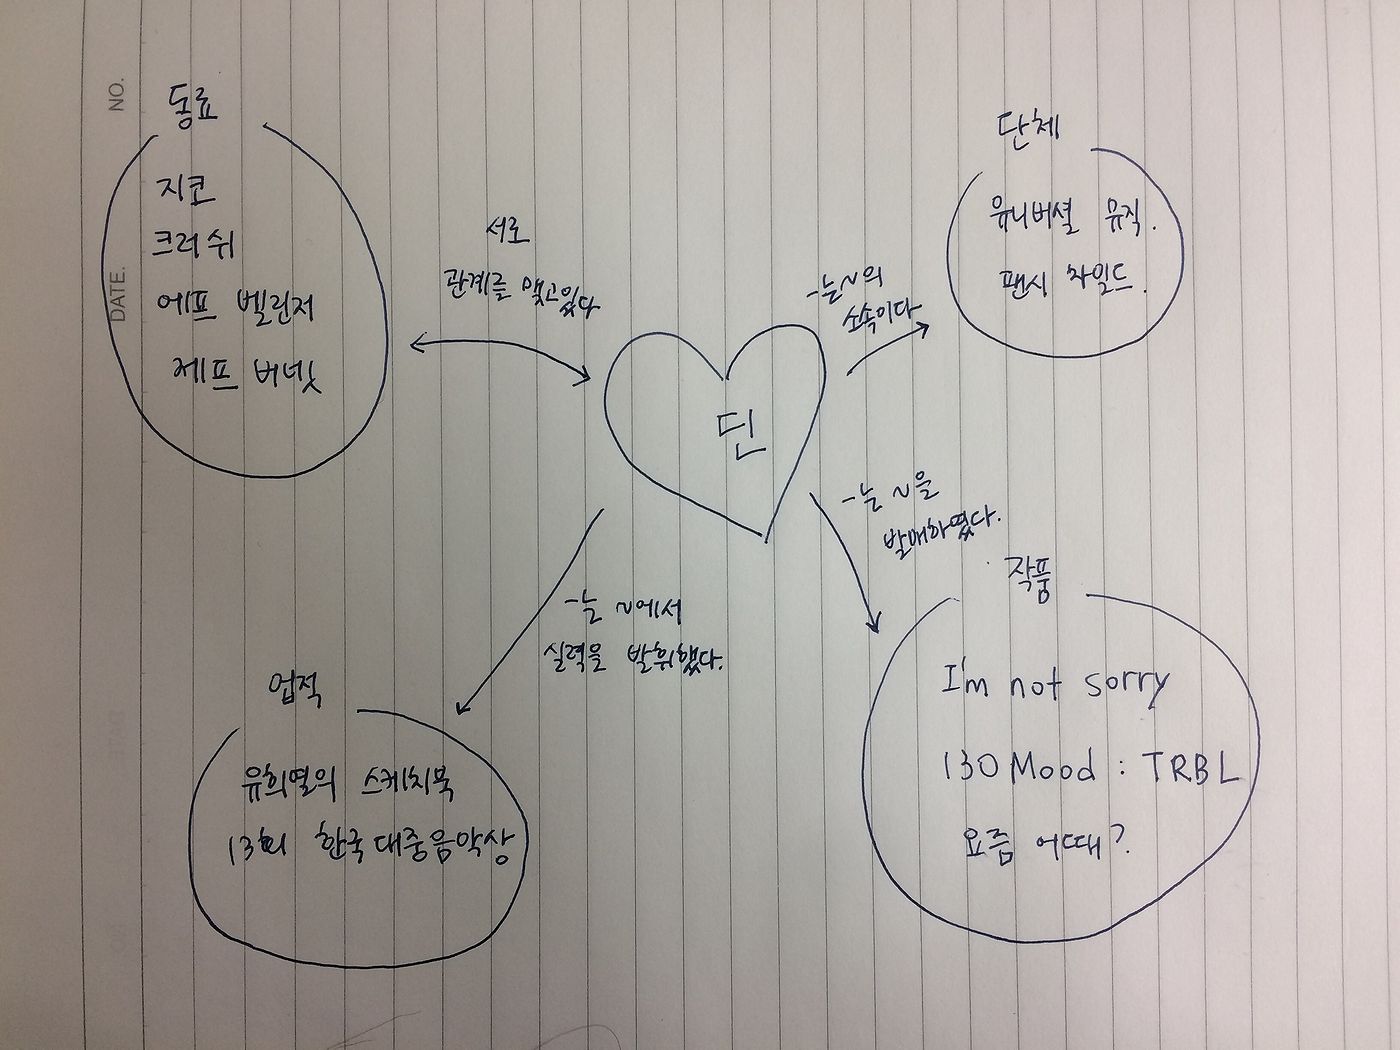 NO.
DATE.
동료
지코
크러쉬
에프 벨린저
제프 버넷
서로
관계를 맺고있다
-는~의
소속이다
단체
유니버셜 뮤직.
팬시 차일드.
딘
-는 ~을
발매하였다.
작품
I'm not sorry
130 Mood : TRBL
요즘 어때?
-는 ~에서
실력을 발휘했다.
업적
유희열의 스케치북
13회 한국대중음악상